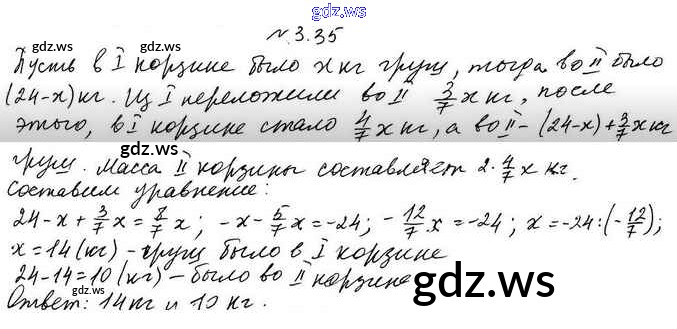 gdz.ws
N 3.35
Пусть в I корзине было x кг груш, тогда во II было
(24-x) кг. Из I переложили во II 3/7 x кг, после
этого, в I корзине стало 4/7 x кг, а во II - (24-x)+3/7 x кг
груш. Масса II корзины составляет 2·4/7 x кг.
Составим уравнение:
24-x+3/7 x=8/7 x; -x-5/7 x=-24; -12/7 x=-24; x=-24:(-12/7);
x=14(кг) - груш было в I корзине
24-14=10(кг) - было во II корзине
Ответ: 14кг и 10 кг.
gdz.ws
gdz.ws
gdz.ws
gdz.ws
gdz.ws